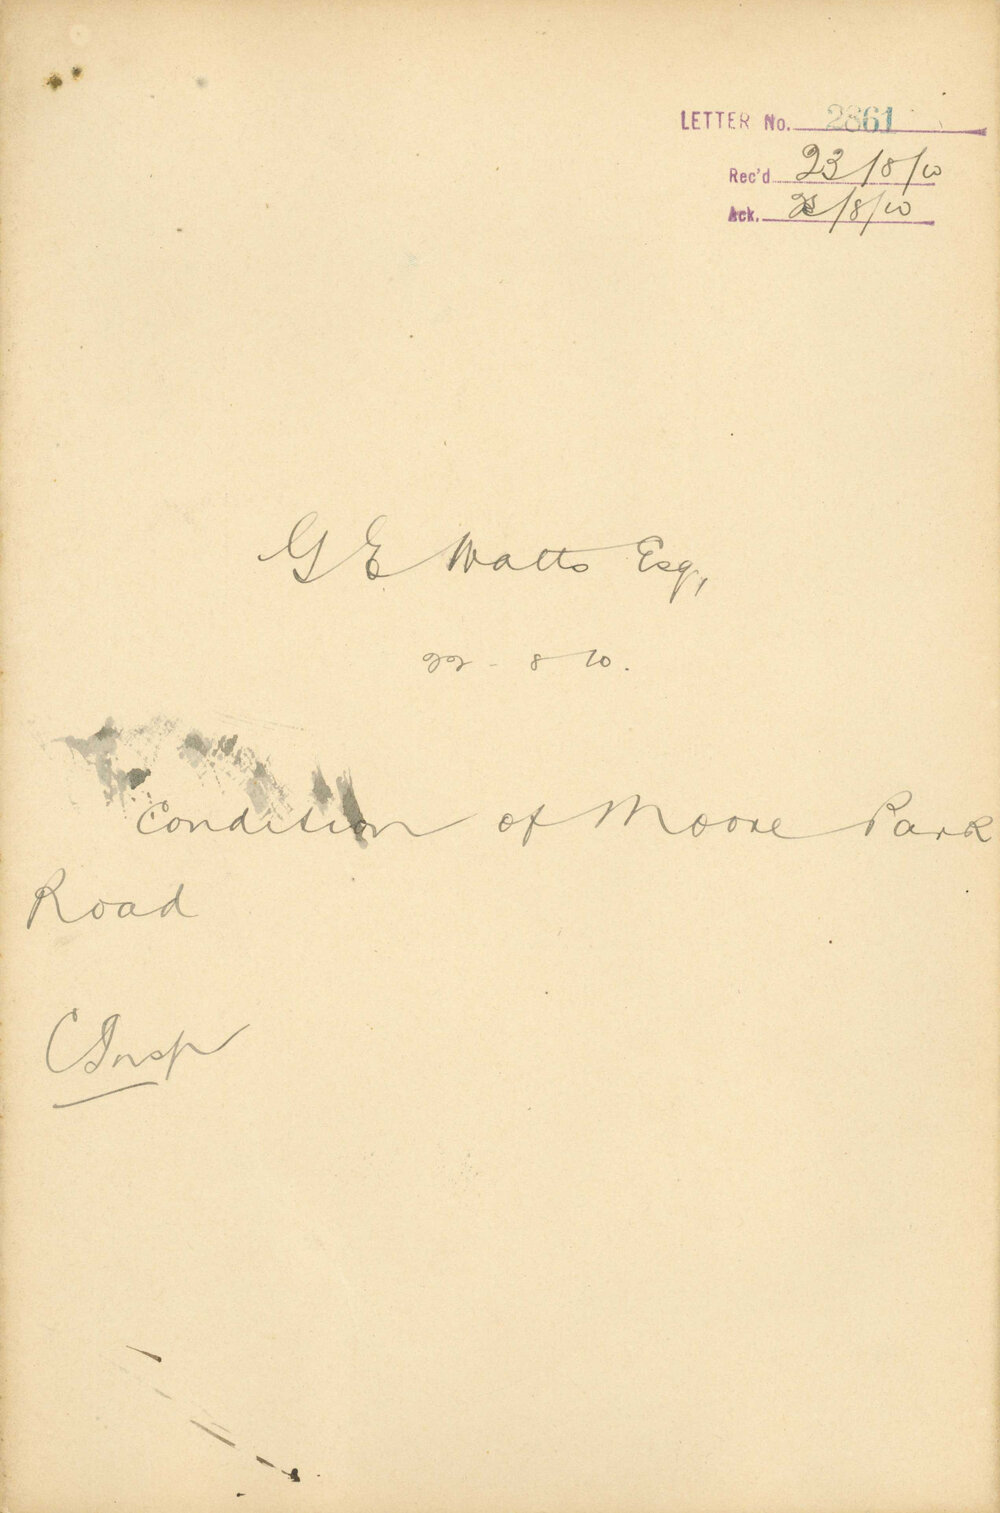 LETTER No. 2861
Rec'd 23/8/10
Ack. /8/10
G E Watts Esq,
22 - 8 10.
Condition of Moore Park
Road
C Insp